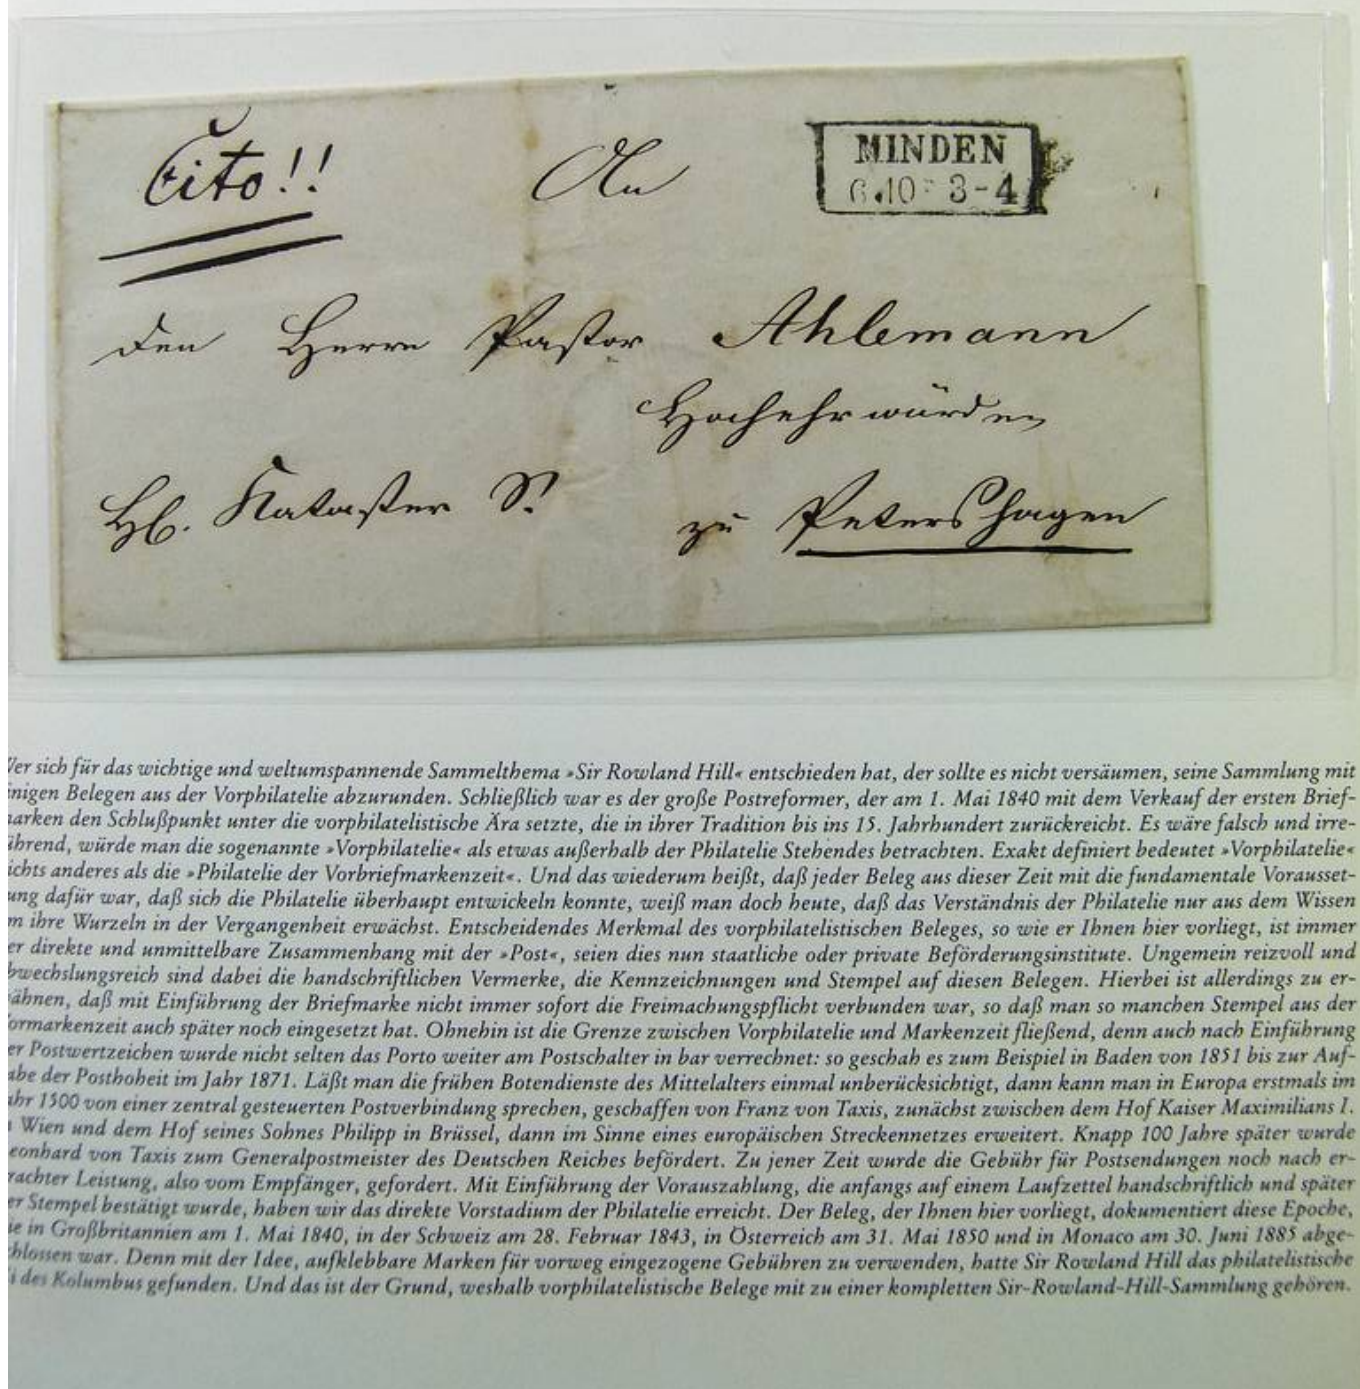 Cito!!
An
MINDEN
6.10 3-4
den Herrn Pastor Ahlemann
Hochehrwürden
Kataster S!
zu Petershagen
Wer sich für das wichtige und weltumspannende Sammelthema »Sir Rowland Hill« entschieden hat, der sollte es nicht versäumen, seine Sammlung mit
inigen Belegen aus der Vorphilatelie abzurunden. Schließlich war es der große Postreformer, der am 1. Mai 1840 mit dem Verkauf der ersten Brief-
arken den Schlußpunkt unter die vorphilatelistische Ära setzte, die in ihrer Tradition bis ins 15. Jahrhundert zurückreicht. Es wäre falsch und irre-
ührend, würde man die sogenannte »Vorphilatelie« als etwas außerhalb der Philatelie Stehendes betrachten. Exakt definiert bedeutet »Vorphilatelie«
ichts anderes als die »Philatelie der Vorbriefmarkenzeit«. Und das wiederum heißt, daß jeder Beleg aus dieser Zeit mit die fundamentale Vorausset-
ung dafür war, daß sich die Philatelie überhaupt entwickeln konnte, weiß man doch heute, daß das Verständnis der Philatelie nur aus dem Wissen
m ihre Wurzeln in der Vergangenheit erwächst. Entscheidendes Merkmal des vorphilatelistischen Beleges, so wie er Ihnen hier vorliegt, ist immer
er direkte und unmittelbare Zusammenhang mit der »Post«, seien dies nun staatliche oder private Beförderungsinstitute. Ungemein reizvoll und
bwechslungsreich sind dabei die handschriftlichen Vermerke, die Kennzeichnungen und Stempel auf diesen Belegen. Hierbei ist allerdings zu er-
ähnen, daß mit Einführung der Briefmarke nicht immer sofort die Freimachungspflicht verbunden war, so daß man so manchen Stempel aus der
ormarkenzeit auch später noch eingesetzt hat. Ohnehin ist die Grenze zwischen Vorphilatelie und Markenzeit fließend, denn auch nach Einführung
er Postwertzeichen wurde nicht selten das Porto weiter am Postschalter in bar verrechnet: so geschah es zum Beispiel in Baden von 1851 bis zur Auf-
abe der Posthoheit im Jahr 1871. Läßt man die frühen Botendienste des Mittelalters einmal unberücksichtigt, dann kann man in Europa erstmals im
ahr 1500 von einer zentral gesteuerten Postverbindung sprechen, geschaffen von Franz von Taxis, zunächst zwischen dem Hof Kaiser Maximilians I.
Wien und dem Hof seines Sohnes Philipp in Brüssel, dann im Sinne eines europäischen Streckennetzes erweitert. Knapp 100 Jahre später wurde
eonhard von Taxis zum Generalpostmeister des Deutschen Reiches befördert. Zu jener Zeit wurde die Gebühr für Postsendungen noch nach er-
rachter Leistung, also vom Empfänger, gefordert. Mit Einführung der Vorauszahlung, die anfangs auf einem Laufzettel handschriftlich und später
er Stempel bestätigt wurde, haben wir das direkte Vorstadium der Philatelie erreicht. Der Beleg, der Ihnen hier vorliegt, dokumentiert diese Epoche,
ie in Großbritannien am 1. Mai 1840, in der Schweiz am 28. Februar 1843, in Österreich am 31. Mai 1850 und in Monaco am 30. Juni 1885 abge-
chlossen war. Denn mit der Idee, aufklebbare Marken für vorweg eingezogene Gebühren zu verwenden, hatte Sir Rowland Hill das philatelistische
i des Kolumbus gefunden. Und das ist der Grund, weshalb vorphilatelistische Belege mit zu einer kompletten Sir-Rowland-Hill-Sammlung gehören.